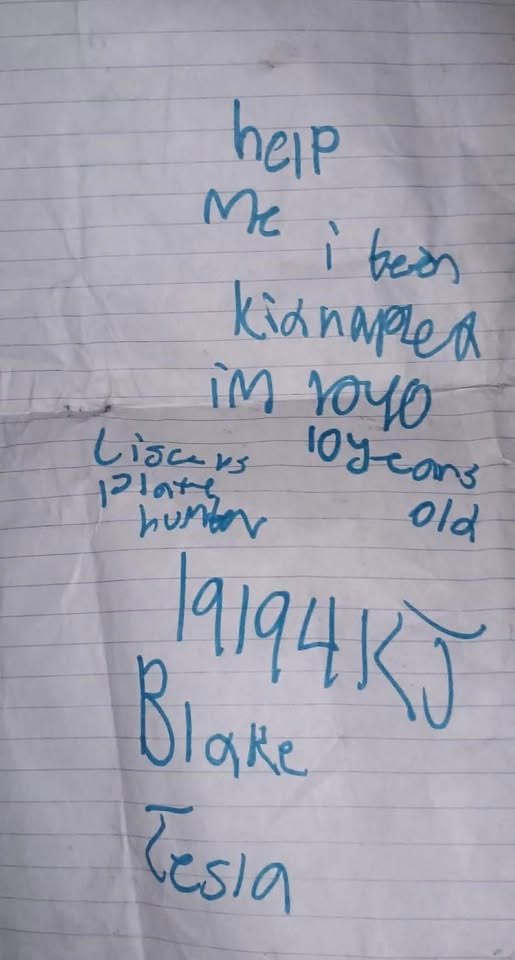 help
me
i been
kidnapped
im 10yo
10 years
old
Liscens
Plate
number
19194KJ
Blake
Tesla